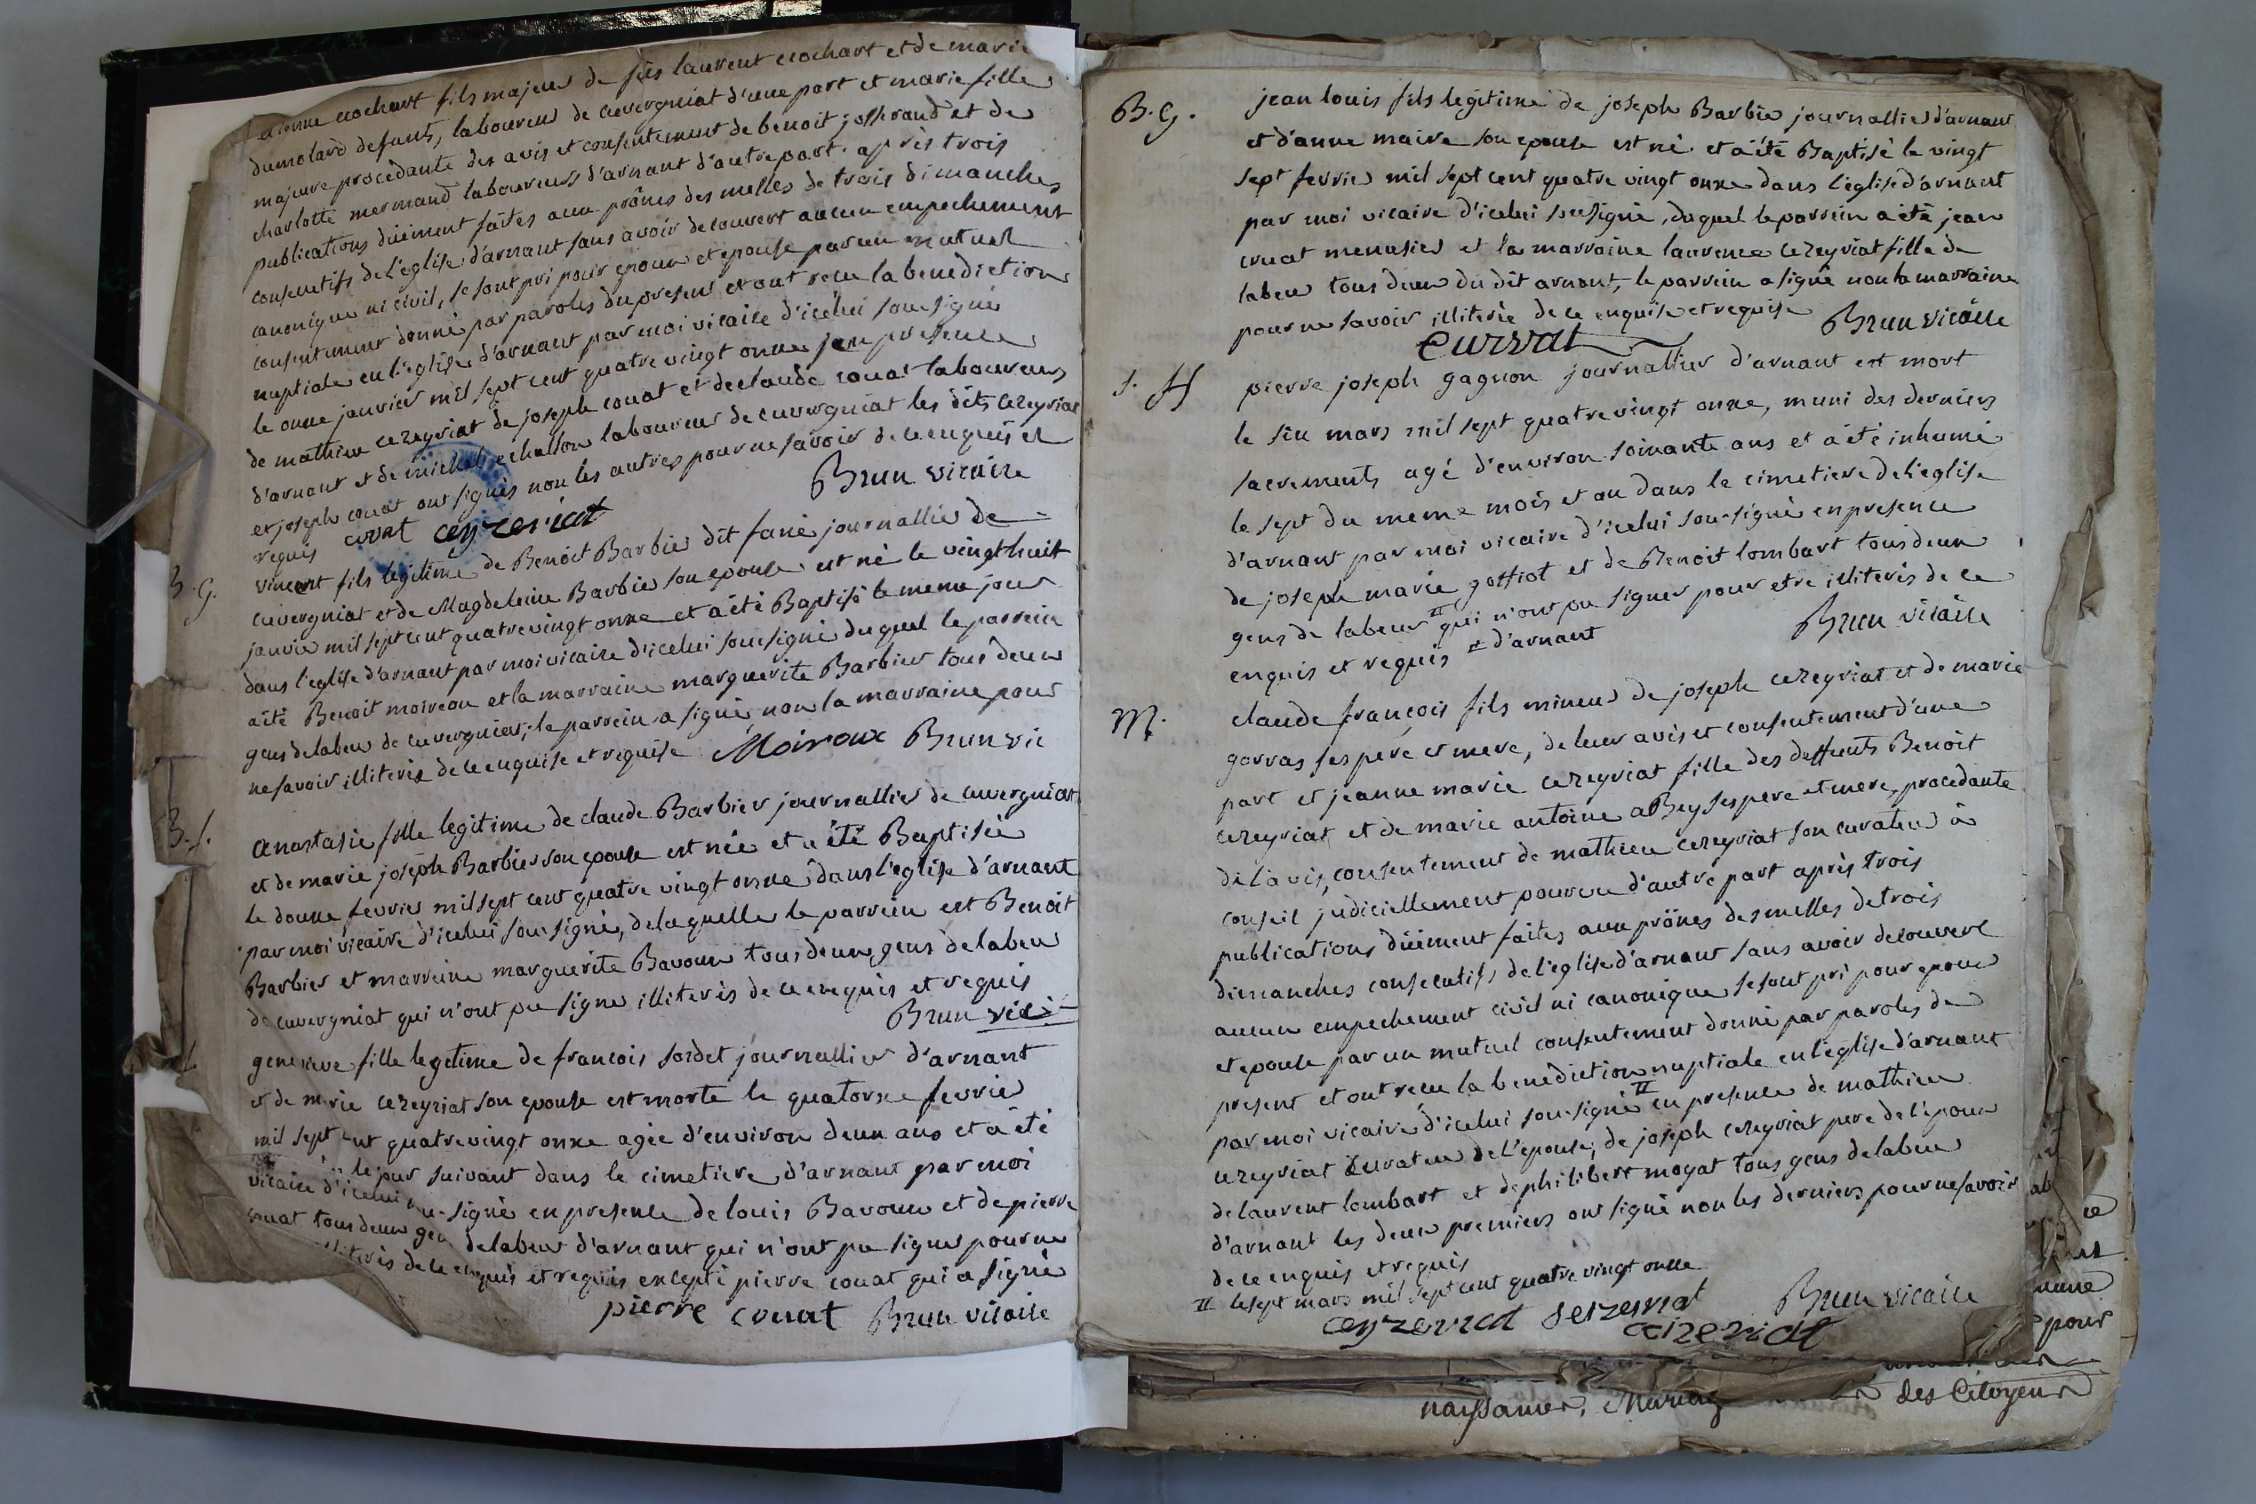 etienne crochart fils majeur de feus laurent crochart et de marie
dumolard defunts, laboureur de cuvergniat d'une part et marie fille
majeure procedante des avis et consentement de benoit josserand et de
charlotte mermand laboureurs d'arnant d'autre part. après trois
publications düement faites aux prônes des messes de trois dimanches
consecutifs de l'eglise d'arnant sans avoir decouvert aucun empechement
canonique ni civil, se sont pri pour epoux et epouse par un mutuel
consentement donné par paroles du present et ont recu la benediction
nuptiale en l'eglise d'arnant par moi vicaire d'icelui sousigné
le onze janvier mil sept cent quatre vingt onze en presence
de mathieu cezeyriat de joseph couat et de claude couat laboureurs
d'arnant et de michel echallon laboureur de cuvergniat les dits cezeyriat
et joseph couat ont signés non les autres pour ne savoir de ce enquis et
requis couat ceyzeriat Brun vicaire
B. G. vincent fils legitime de Benoit Barbier dit fanié journallier de
cuvergniat et de Magdeleine Barbier son epouse est né le vingt huit
janvier mil sept cent quatre vingt onze et a été Baptisé le meme jour
dans l'eglise d'arnant par moi vicaire d'icelui sousigné duquel le parrein
a été Benoit moireau et la marraine marguerite Barbier tous deux
gens de labeur de cuvergniat; le parrein a signé non la marraine pour
ne savoir illiterée de ce enquise et requise Moiroux Brun vic
B. f. anastasie fille legitime de claude Barbier journallier de cuvergniat
et de marie joseph Barbier son epouse est née et a été Baptisée
le douze fevrier mil sept cent quatre vingt onze dans l'eglise d'arnant
par moi vicaire d'icelui sousigné, de laquelle le parrein est Benoit
Barbier et marreine marguerite Bavoux tous deux gens de labeur
de cuvergniat qui n'ont pu signer illiterés de ce enquis et requis
Brun vic
genevieve fille legitime de francois sordet journallier d'arnant
et de marie cezeyriat son epouse est morte le quatorze fevrier
mil sept cent quatre vingt onze agée d'environ deux ans et a été
le jour suivant dans le cimetiere d'arnant par moi
vicaire d'icelui sousigné en presence de louis Bavoux et de pierre
couat tous deux gens de labeur d'arnant qui n'ont pu signer pour ne
illiterés de ce enquis et requis excepté pierre couat qui a signé
pierre couat Brun vicaire
B. G. jean louis fils legitime de joseph Barbier journallier d'arnant
et d'anne maire son epouse est né et a été Baptisé le vingt
sept fevrier mil sept cent quatre vingt onze dans l'eglise d'arnant
par moi vicaire d'icelui sousigné, duquel le parrein a été jean
cruat menusier et la marraine laurence cezeyriat fille de
labeur tous deux du dit arnant, le parrein a signé non la marraine
pour ne savoir illiterée de ce enquise et requise Brun vicaire
Curvat
S. H pierre joseph gagnon journallier d'arnant est mort
le six mars mil sept quatre vingt onze, muni des derniers
sacrements agé d'environ soixante ans et a été inhumé
le sept du meme mois et an dans le cimetiere de l'eglise
d'arnant par moi vicaire d'icelui sousigné en presence
de joseph marie goffiot et de Benoit lombart tous deux
gens de labeur # qui n'ont pu signer pour etre illiterés de ce
enquis et requis # d'arnant Brun vicaire
M. claude françois fils mineur de joseph cezeyriat et de marie
gorras ses pere et mere, de leur avis et consentement d'une
part et jeanne marie cezeyriat fille des deffunts Benoit
cezeyriat et de marie antoine aBey ses pere et mere, procedante
de l'avis, consentement de mathieu cezeyriat son curateur à
conseil judiciellement pourvu d'autre part après trois
publications düement faites aux prônes des messes de trois
dimanches consecutifs de l'eglise d'arnant sans avoir decouvert
aucun empechement civil ni canonique se sont pri pour epoux
et epouse par un mutuel consentement donné par paroles de
present et ont recu la benediction nuptiale en l'eglise d'arnant
par moi vicaire d'icelui sousigné # en presence de mathieu
cezeyriat curateur de l'epouse, de joseph cezeyriat pere de l'epoux
de laurent lombart et de philibert moyat tous gens de labeur
d'arnant les deux premiers ont signé non les derniers pour ne savoir
de ce enquis et requis
# le sept mars mil sept cent quatre vingt onze
ceyzeriat seizeriat Brun vicaire
ceizeriat
pour
naissances, Mariag
des Citoyens